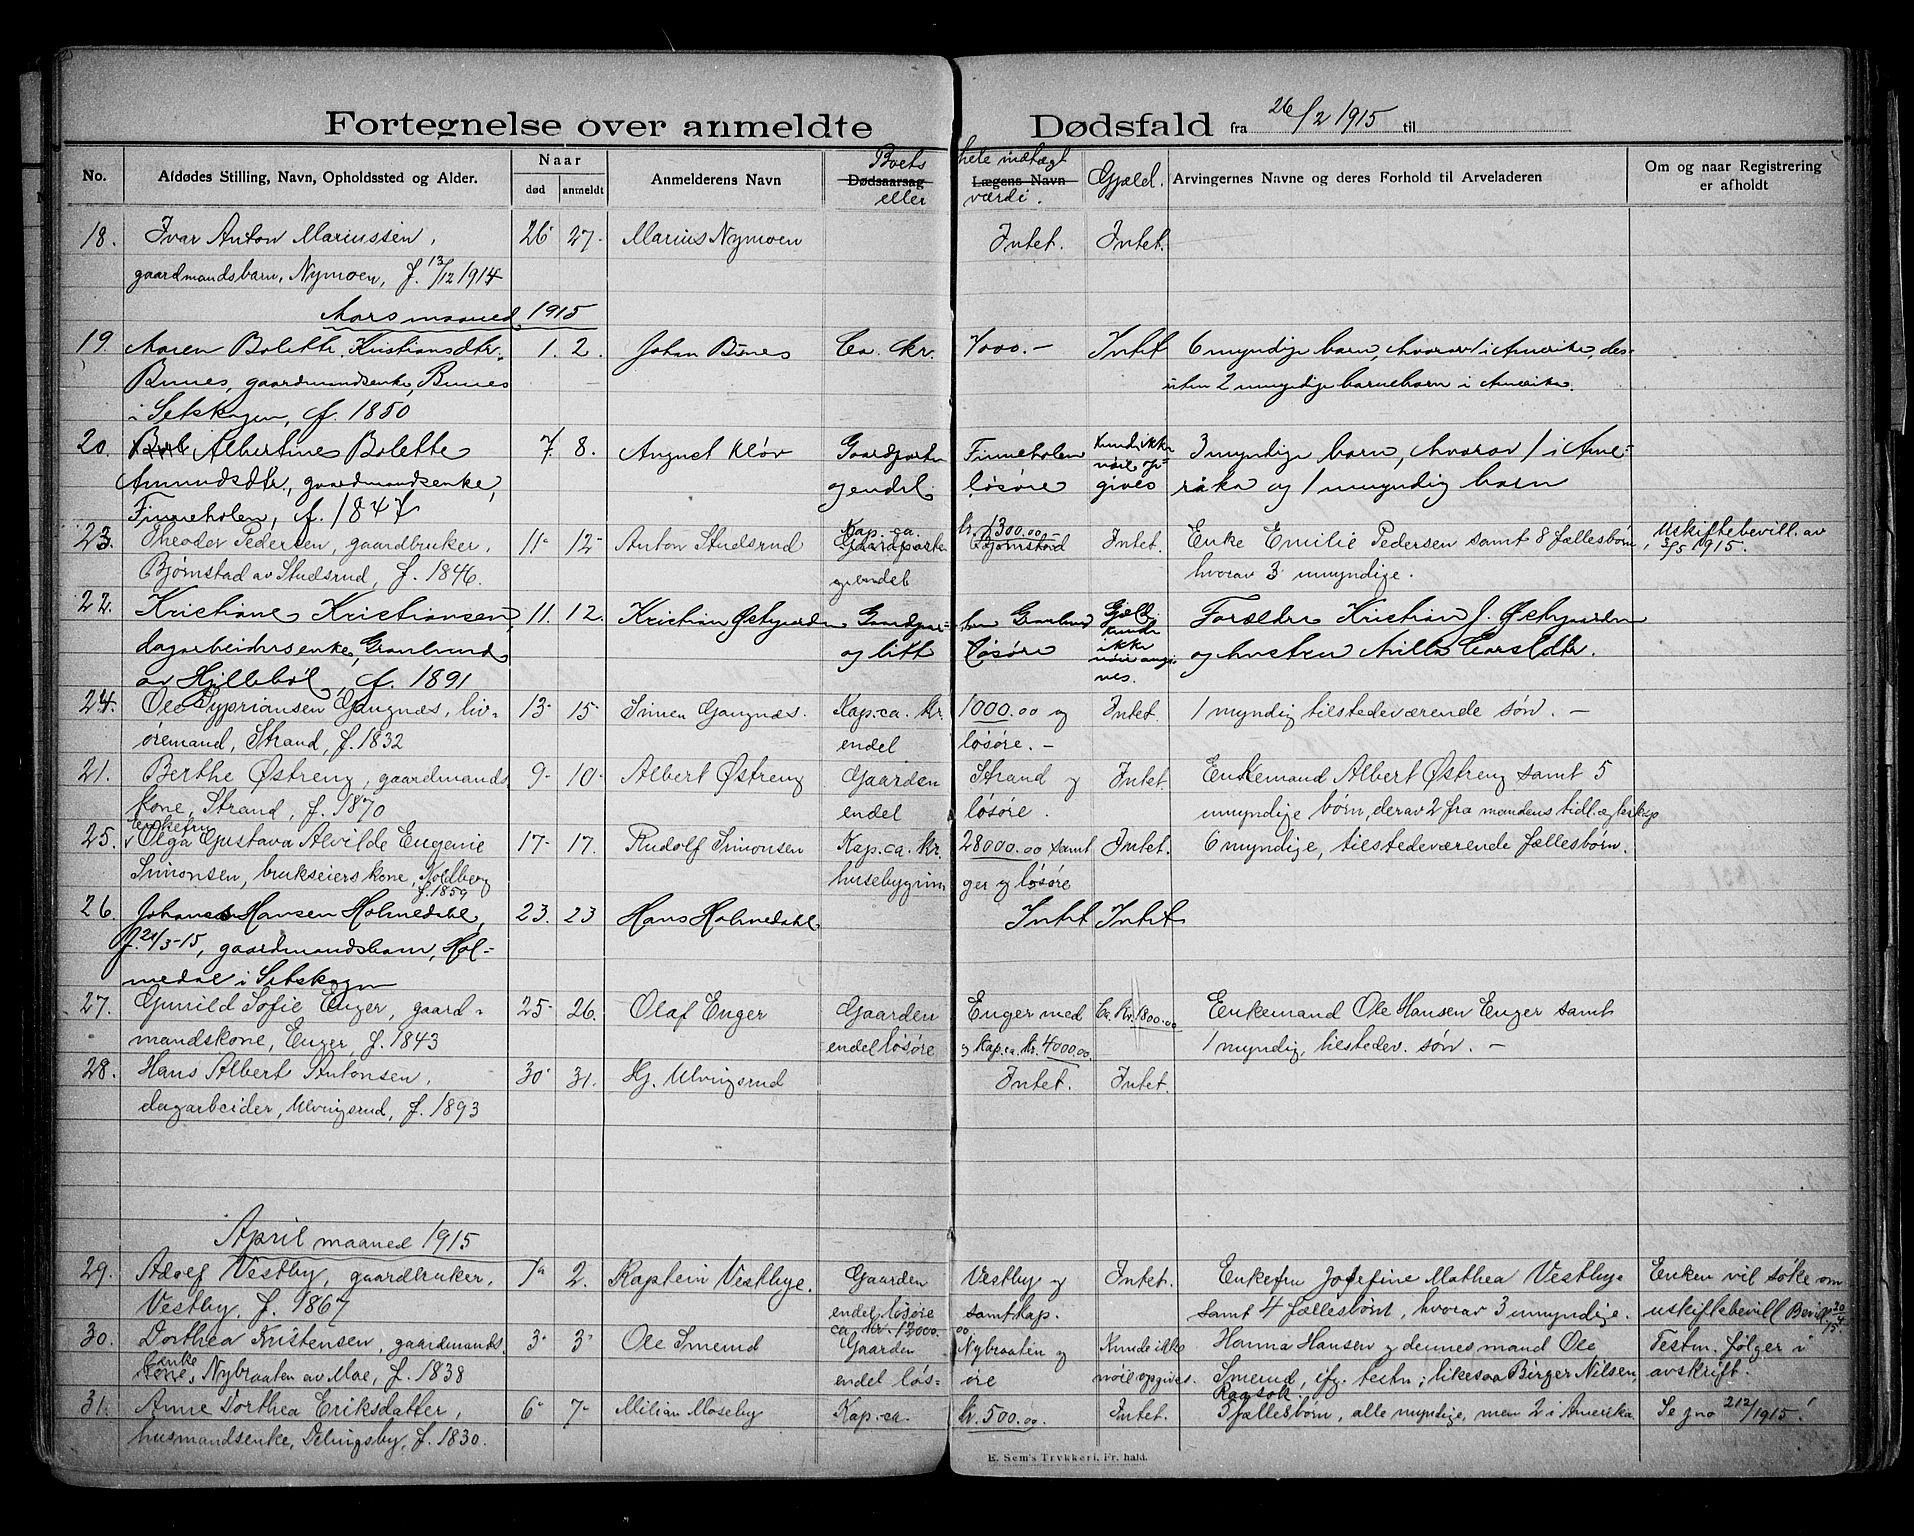 Fortegnelse over anmeldte Dødsfald fra 26/2 1915 til
No. Afdødes Stilling, Navn, Opholdssted og Alder. Naar død anmeldt Anmelderens Navn Boets Dødsaarsag eller hele indtægt Lægens Navn værdi. Gjæld. Arvingernes Navne og deres Forhold til Arveladeren Om og naar Registrering er afholdt
18. Ivar Anton Mariussen, 26 27. Marius Nymoen Intet. Intet.
gaardmandsbarn, Nymoen, f. 13/12 1914
Mars maaned 1915
19. Maren Bolette Kristiansdtr. 1. 2. Johan Bunes Ca. kr. 7000.- Intet 6 myndige barn, hvorav 1 i Amerika, des-
Bunes, gaardmandsenke, Bunes uten 2 umyndige barnebarn i Amerika.
i Setskogen, f. 1850
20. Albertine Bolette 7. 8. August Kløv Gaardparten Finneholen Kund ikke 3 myndige barn, hvorav 1 i Ame-
Amundsdtr, gaardmandsenke, og endel løsøre nøie op- gives rika og 1 umyndig barn
Finneholen, f. 1847
23. Theodor Pedersen, gaardbruker, 11 12 Anton Studsrud Kap. ca. Gaardparten kr. 1300.00 Bjørnstad Intet. Enke Emilie Pedersen samt 8 fællesbörn, Uskiftebevill. av
Bjørnstad av Studsrud, f. 1846. og endel hvorav 3 umyndige. 3/5 1915.
22. Kristiane Kristiansen, 11. 12. Kristian Østgaarden Gaardpar- ten Granlund Gjæld kunde Forældre Kristian J. Østgaarden
dagarbeidersenke, Granlund og litt løsøre ikke nøie angi- og hustru Milla Carlsdtr.
av Hillebøl, f. 1891 ves.
24. Ole Sypriansen Gangnæs, liv- 13 15 Simen Gangnæs. Kap. ca. kr. 1000.00 og Intet. 1 myndig tilstedeværende søn. -
øremand, Strand, f. 1832 endel løsøre. -
21. Berthe Østreng, gaardmands 9 10 Albert Østreng Gaarden Strand og Intet. Enkemand Albert Østreng samt 5
kone, Strand, f. 1870 endel løsøre. umyndige børn, derav 2 fra mandens tidl. ægteskap
enkefru
25. Olga Gustava Alvilde Eugenie 17 17. Rudolf Simonsen Kap. ca. kr. 28000.00 samt Intet. 6 myndige, tilstedeværende fællesbörn.
Simonsen, brukseiers kone, Koldberg husebygnin- ger og løsøre
f. 1859
26. Johannes Hansen Holmedahl, 23. 23 Hans Holmedahl Intet Intet
f. 21/3-15, gaardmandsbarn, Hol-
medal i Setskogen
27. Gunild Sofie Enger, gaard- 25 26. Olaf Enger Gaarden Enger med Ca. kr. 1800.00 Enkemand Ole Hansen Enger samt
mandskone, Enger, f. 1843 endel løsøre og kap. ca. kr. 4000.00. 1 myndig, tilstedev. søn. -
28. Hans Albert Antonsen, 30 31. Kj. Ulvingsrud Intet. Intet.
dagarbeider, Ulvingsrud, f. 1893
April maaned 1915
29. Adolf Vestby, gaardbruker, 1 2. Kaptein Vestbye. Gaarden Vestby og Intet. Enkefru Josefine Mathea Vestbye Enken vil søke om
Vestby, f. 1867 endel løsøre samt kap. samt 4 fællesbörn, hvorav 3 umyndige. uskiftebevill Bevilg. 20/4 15.
ca. kr. 12000.00
30. Dorthea Kristensen, gaardmands 3 3 Ole Smerud Gaarden Nybraaten og Kunde ikke Hanna Hansen og dennes mand Ole Testm. følger i
enke kone, Nybraaten av Moe, f. 1838 endel løs- øre nøie opgives. Smerud, ifg. testm; likesaa Birger Nilsen avskrift.
31. Anne Dorthea Eriksdatter, 6 7 Milian Moseby Kap. ca. kr. 500.00. Intet. 5 fællesbörn, alle myndige, men 2 i Amerika Se jno 212/1915.
husmandsenke, Delingsby, f. 1830.
E. Sem's Trykkeri, Fr. hald.